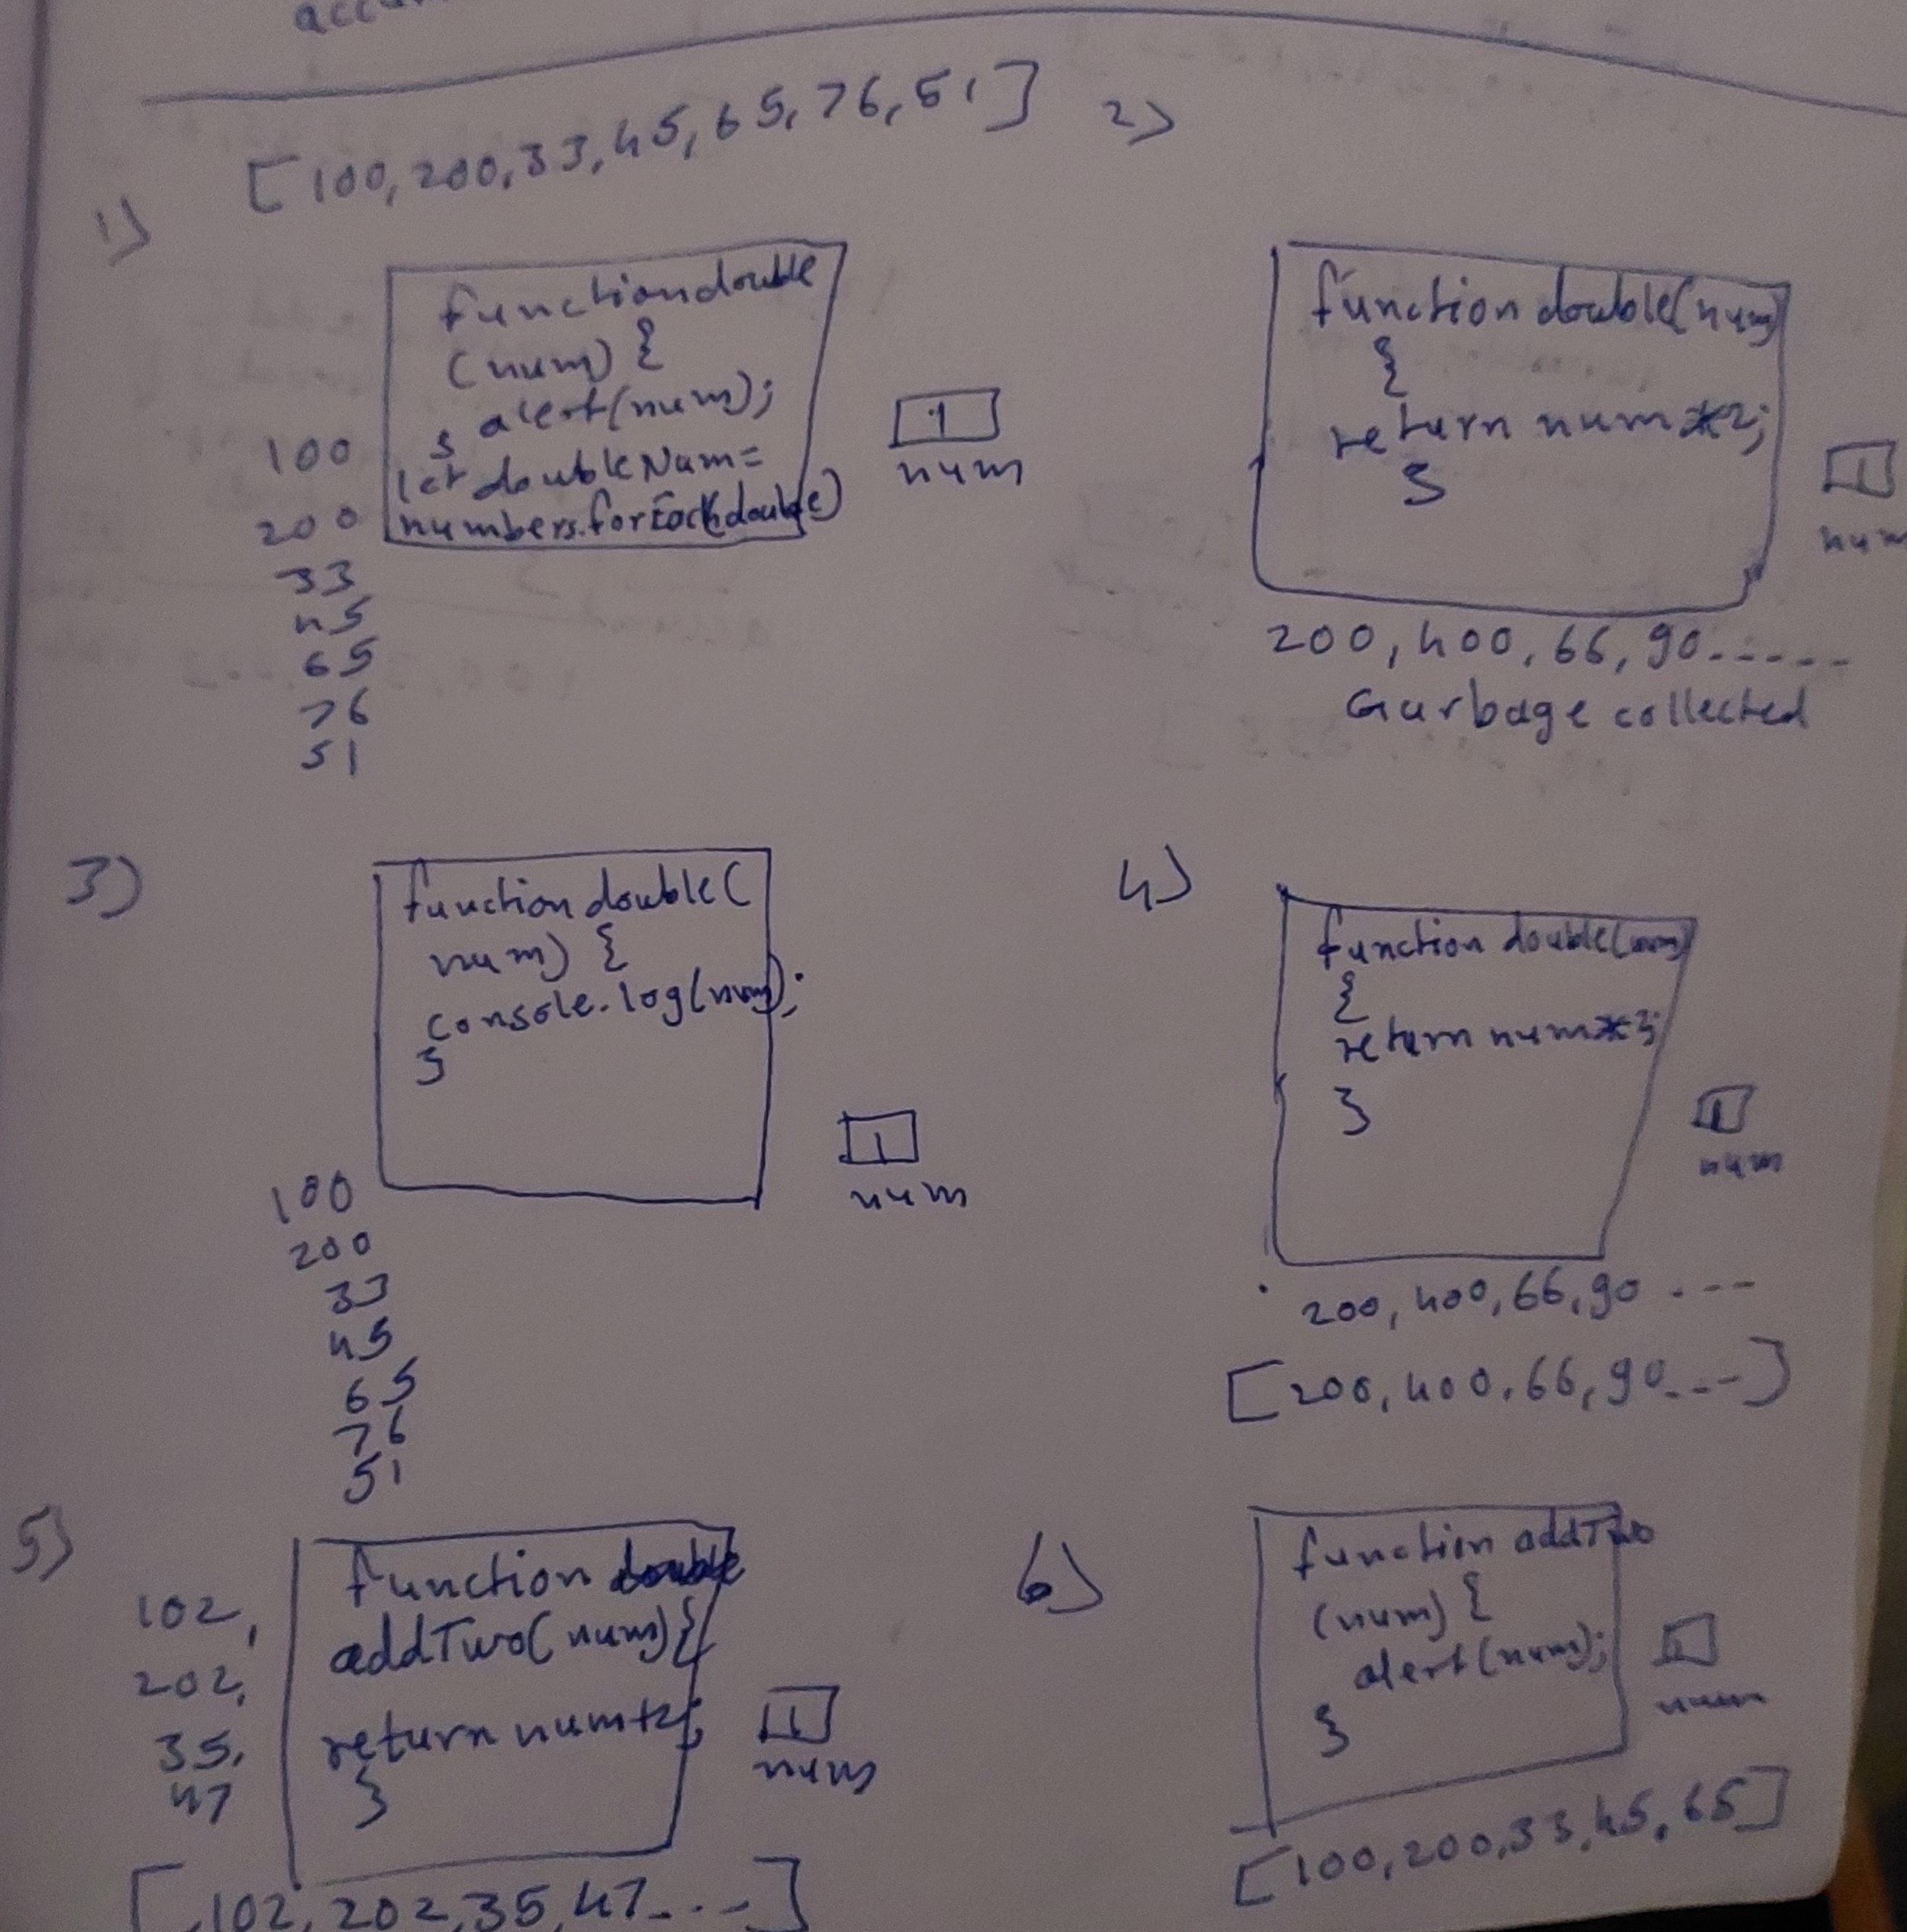 [100, 200, 33, 45, 65, 76, 51]
1)
function double
(num) {
alert(num);
}
let doubleNum =
numbers.forEach(double)
1
num
100
200
33
45
65
76
51
2)
function double(num)
{
return num*2;
}
1
num
200, 400, 66, 90.....
Garbage collected
3)
function double(
num) {
console.log(num);
}
1
num
100
200
33
45
65
76
51
4)
function double(num)
{
return num*2;
}
1
num
200, 400, 66, 90 ....
[200, 400, 66, 90....]
5)
function double
addTwo(num) {
return num+2;
}
1
num
102,
202,
35,
47
[102, 202, 35, 47....]
6)
function addTwo
(num) {
alert(num);
}
num
[100, 200, 33, 45, 65]